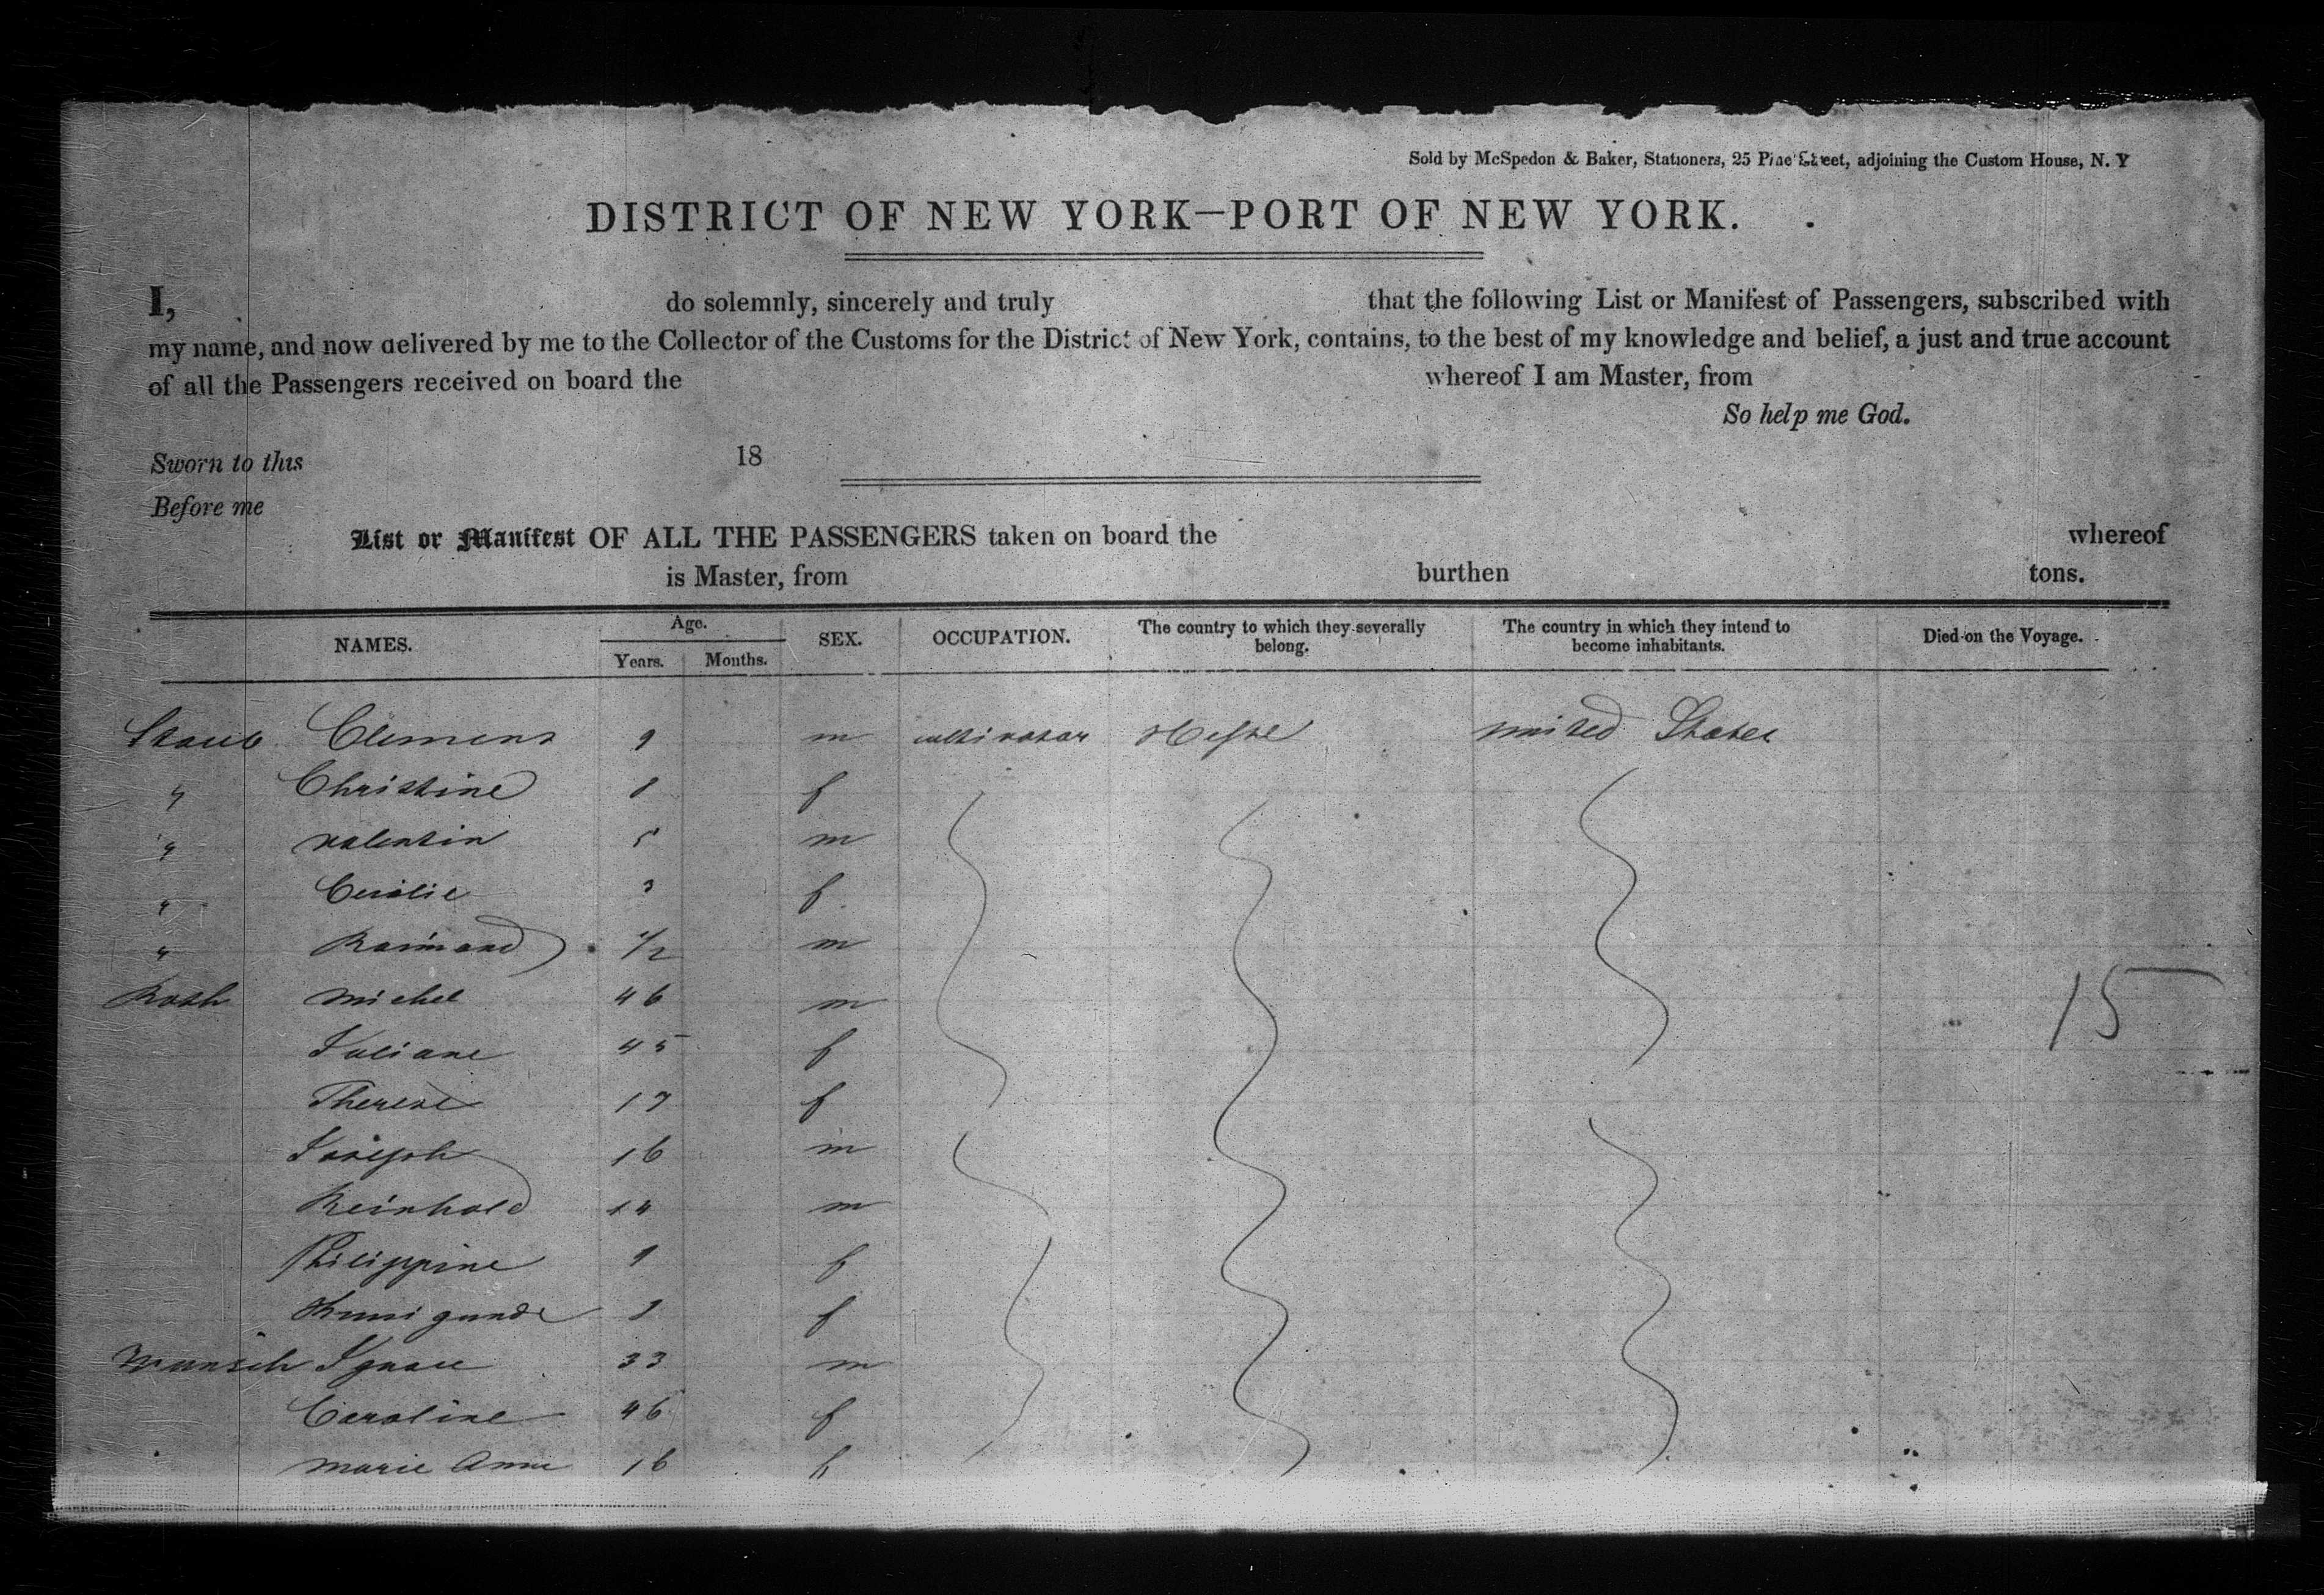 Sold by McSpedon & Baker, Stationers, 25 Pine Street, adjoining the Custom House, N. Y
DISTRICT OF NEW YORK—PORT OF NEW YORK.
I, do solemnly, sincerely and truly that the following List or Manifest of Passengers, subscribed with
my name, and now delivered by me to the Collector of the Customs for the District of New York, contains, to the best of my knowledge and belief, a just and true account
of all the Passengers received on board the whereof I am Master, from
So help me God.
Sworn to this 18
Before me
List or Manifest OF ALL THE PASSENGERS taken on board the whereof
is Master, from burthen tons.
NAMES. Age. Years. Months. SEX. OCCUPATION. The country to which they severally belong. The country in which they intend to become inhabitants. Died on the Voyage.
Staub Clemens 9 m cultivator Hesse united States
" Christine 8 f
" Valentin 5 m
" 3 f
" Raimand 1/2 m
Roth Michel 46 m
Juliane 45 f
Therese 17 f
Joseph 16 m
Reinhold 14 m
Philippine 9 f
Kunigunde 8 f
Wunsch Ignace 33 m
Caroline 46 f
Marie Anne 16 f
15